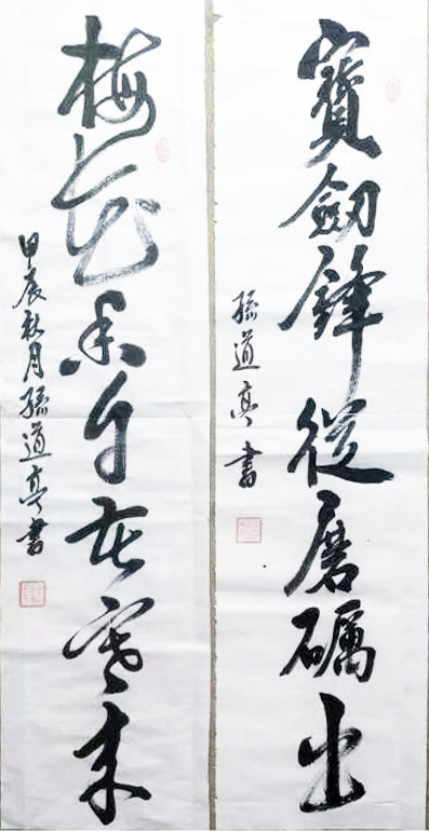 寶劔鋒從磨礪出
孫道亭書
梅花香自苦寒来
甲辰秋月孫道亭書